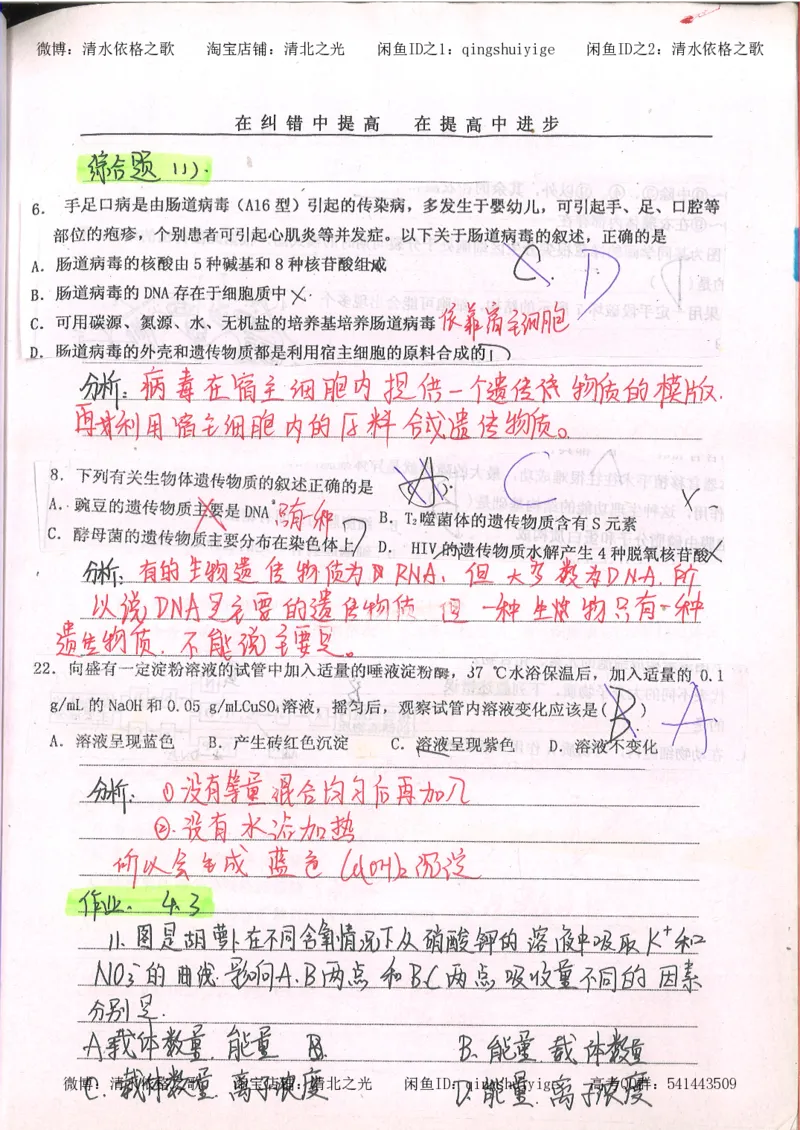 微博：清水依格之歌 淘宝店铺：清北之光 闲鱼ID之1：qingshuiyige 闲鱼ID之2：清水依格之歌
在纠错中提高 在提高中进步
综合题（1）.
6. 手足口病是由肠道病毒（A16 型）引起的传染病，多发生于婴幼儿，可引起手、足、口腔等
部位的疱疹，个别患者可引起心肌炎等并发症。以下关于肠道病毒的叙述，正确的是
C. D
A. 肠道病毒的核酸由 5 种碱基和 8 种核苷酸组成
B. 肠道病毒的 DNA 存在于细胞质中 ×.
C. 可用碳源、氮源、水、无机盐的培养基培养肠道病毒 依靠宿主细胞
D. 肠道病毒的外壳和遗传物质都是利用宿主细胞的原料合成的
分析：病毒在宿主细胞内提供一个遗传 物质的模版.
再 利用宿主细胞内的原料合成遗传物质。
8. 下列有关生物体遗传物质的叙述正确的是 A C
A. 豌豆的遗传物质主要是 DNA 只有一种 B. T₂噬菌体的遗传物质含有 S 元素 ×
C. 酵母菌的遗传物质主要分布在染色体上 D. HIV 的遗传物质水解产生 4 种脱氧核苷酸 ×
分析：有的生物遗传物质为 RNA，但大多数为DNA，所
以说DNA是主要的遗传物质 但一种生物 只有一种
遗生物质，不能说主要是。
22. 向盛有一定淀粉溶液的试管中加入适量的唾液淀粉酶，37 ℃水浴保温后，加入适量的 0.1
g/mL 的 NaOH 和 0.05 g/mLCuSO₄溶液，摇匀后，观察试管内溶液变化应该是( B ) A
A. 溶液呈现蓝色 B. 产生砖红色沉淀 C. 溶液呈现紫色 D. 溶液不变化
分析：①没有等量混合均匀后再加入
②.没有水浴加热
所以会生成 蓝色 Cu(OH)₂沉淀
作业. 4.3
11.图是胡萝卜在不同含氧情况下从硝酸钾的溶液中吸取K⁺和
NO₃⁻的曲线.影响A.B两点 和B.C两点吸收量不同的因素
分别是.
A载体数量.能量 B.能量 载体数量
C.载体数量.离子浓度 D.能量.离子浓度
微博：清水依格之歌 淘宝店铺：清北之光 闲鱼ID：qingshuiyige 高考QQ群：541443509